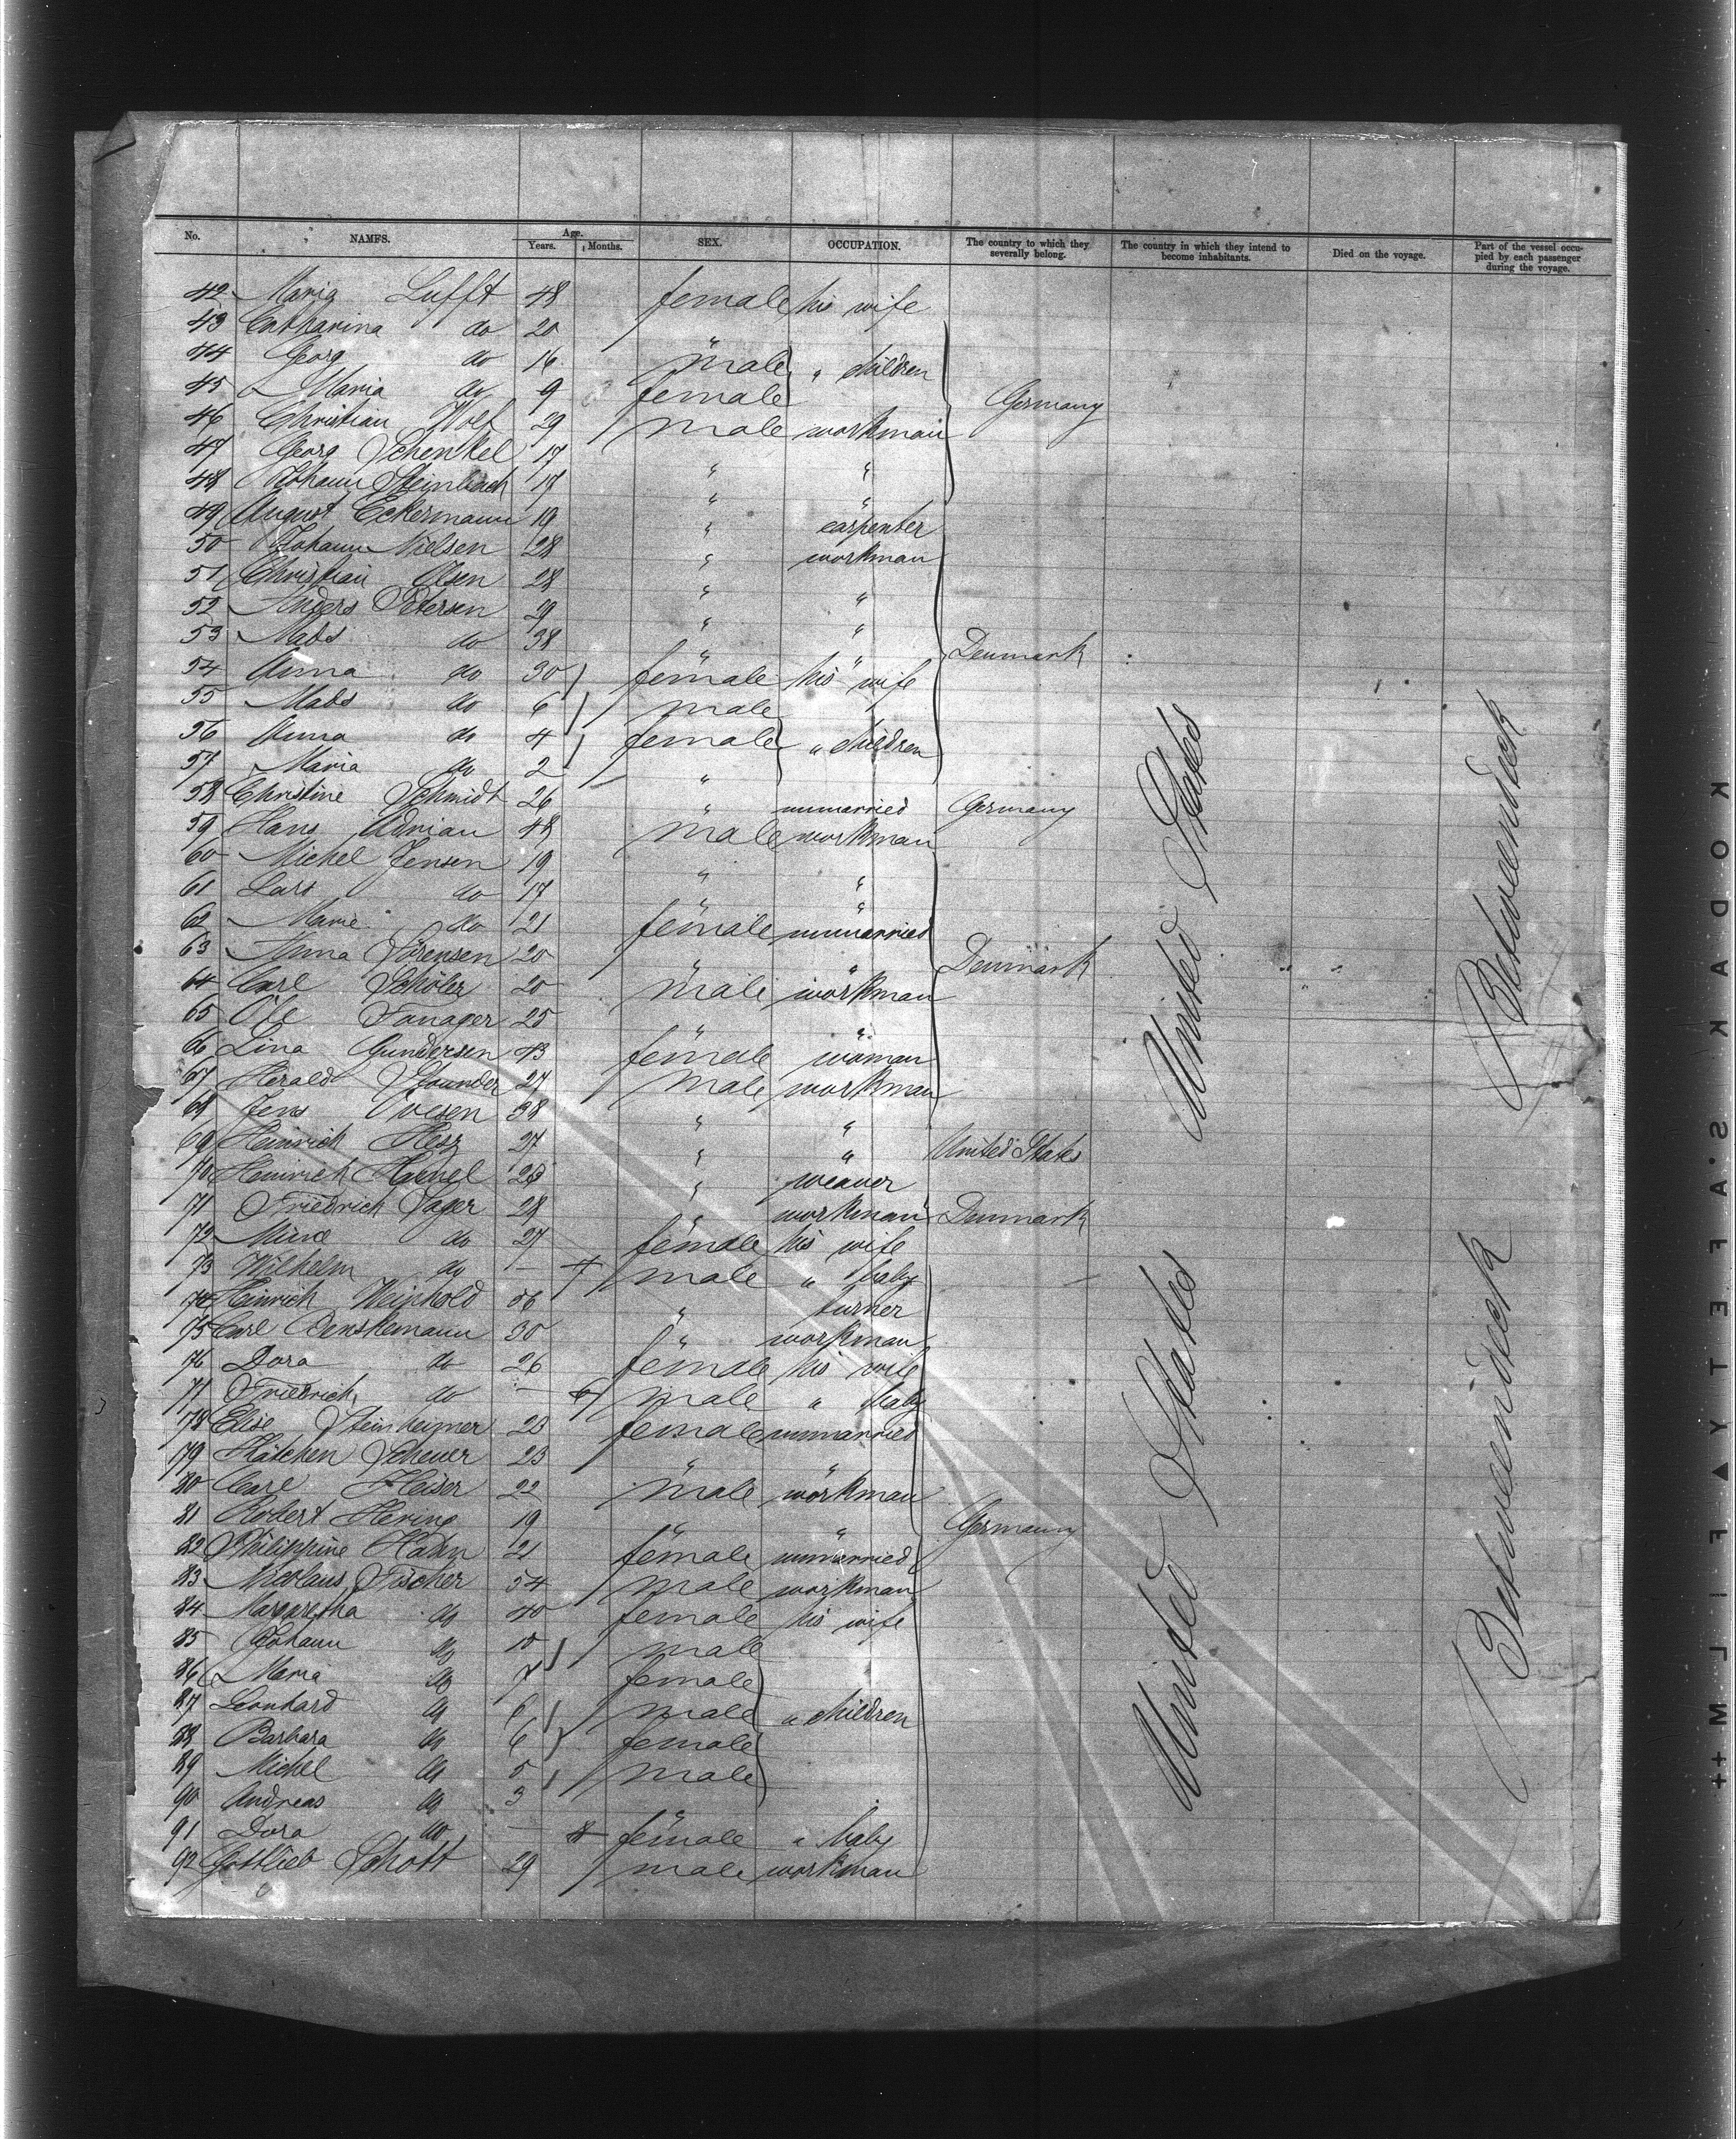 No. NAMES. Age. Years. Months. SEX. OCCUPATION. The country to which they severally belong. The country in which they intend to become inhabitants. Died on the voyage. Part of the vessel occupied by each passenger during the voyage.
42 Maria Lufft 48 female his wife
43 Catharina do 20 "
44 Georg do 16 male " children
45 Maria do 9 female Germany
46 Christian Wolf 29 male workman
47 Georg Schenkel 17 " "
48 Johann Steinbach 17 " "
49 August Eckermann 19 " carpenter
50 Johann Nielsen 28 " workman
51 Christian Olsen 28 " "
52 Anders Petersen 29 " "
53 Mads do 38 " " Denmark
54 Anna do 30 female his wife
55 Mads do 6 male
56 Anna do 4 female " children
57 Maria do 2 "
58 Christine Schmidt 26 " unmarried Germany
59 Hans Adrian 48 male workman
60 Michel Jensen 19 " "
61 Lars do 17 " "
62 Marie do 21 female unmarried
63 Anna Sörensen 20 " " Denmark
64 Carl Schöler 20 male workman
65 Ole 25 " "
66 Lina Gundersen 43 female woman
67 Herald 27 male workman
68 Jens Ovesen 38 " "
69 Heinrich Hesz 27 " " United States
70 Heinrich 28 " weaver
71 Friedrich Sager 28 " workman Denmark
72 do 27 female his wife
73 Wilhelm do — 7 male " baby
74 Heinrich Weinhold 56 " turner
75 Carl Denskemann 30 " workman
76 Dora do 26 female his wife
77 Friedrich do — 6 male " baby
78 Elise Steinheimer 23 female unmarried
79 Kätchen Scheuer 23 " "
80 Carl Heiser 22 male workman
81 Robert Hering 19 " " Germany
82 Philippine Hahn 21 female unmarried
83 Nicolaus Fischer 54 male workman
84 Margaretha do 40 female his wife
85 Johann do 10 male
86 Maria do 7 female
87 Leonhard do 6 male " children
88 Barbara do 6 female
89 Michel do 5 male
90 Andreas do 3 "
91 Dora do — 8 female " baby
92 Gottlieb Schott 29 male workman
United States
United States
Betweendeck
Betweendeck
KODAK S.AFETY FILM